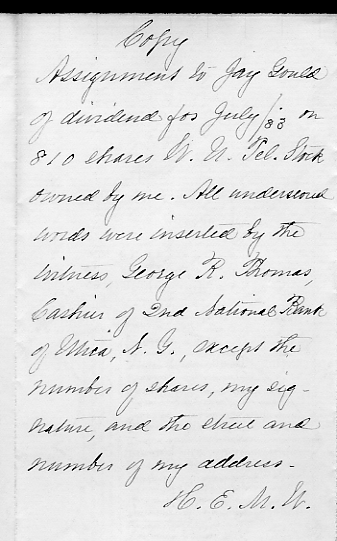 Copy
Assignment to Jay Gould
of dividend for July /83 on
810 shares W. U. Tel. Stock
owned by me. All underscored
words were inserted by the
witness, George R. Thomas,
Cashier of 2nd National Bank
of Utica, N. Y., except the
number of shares, my sig-
nature, and the street and
number of my address.
H. E. M. W.